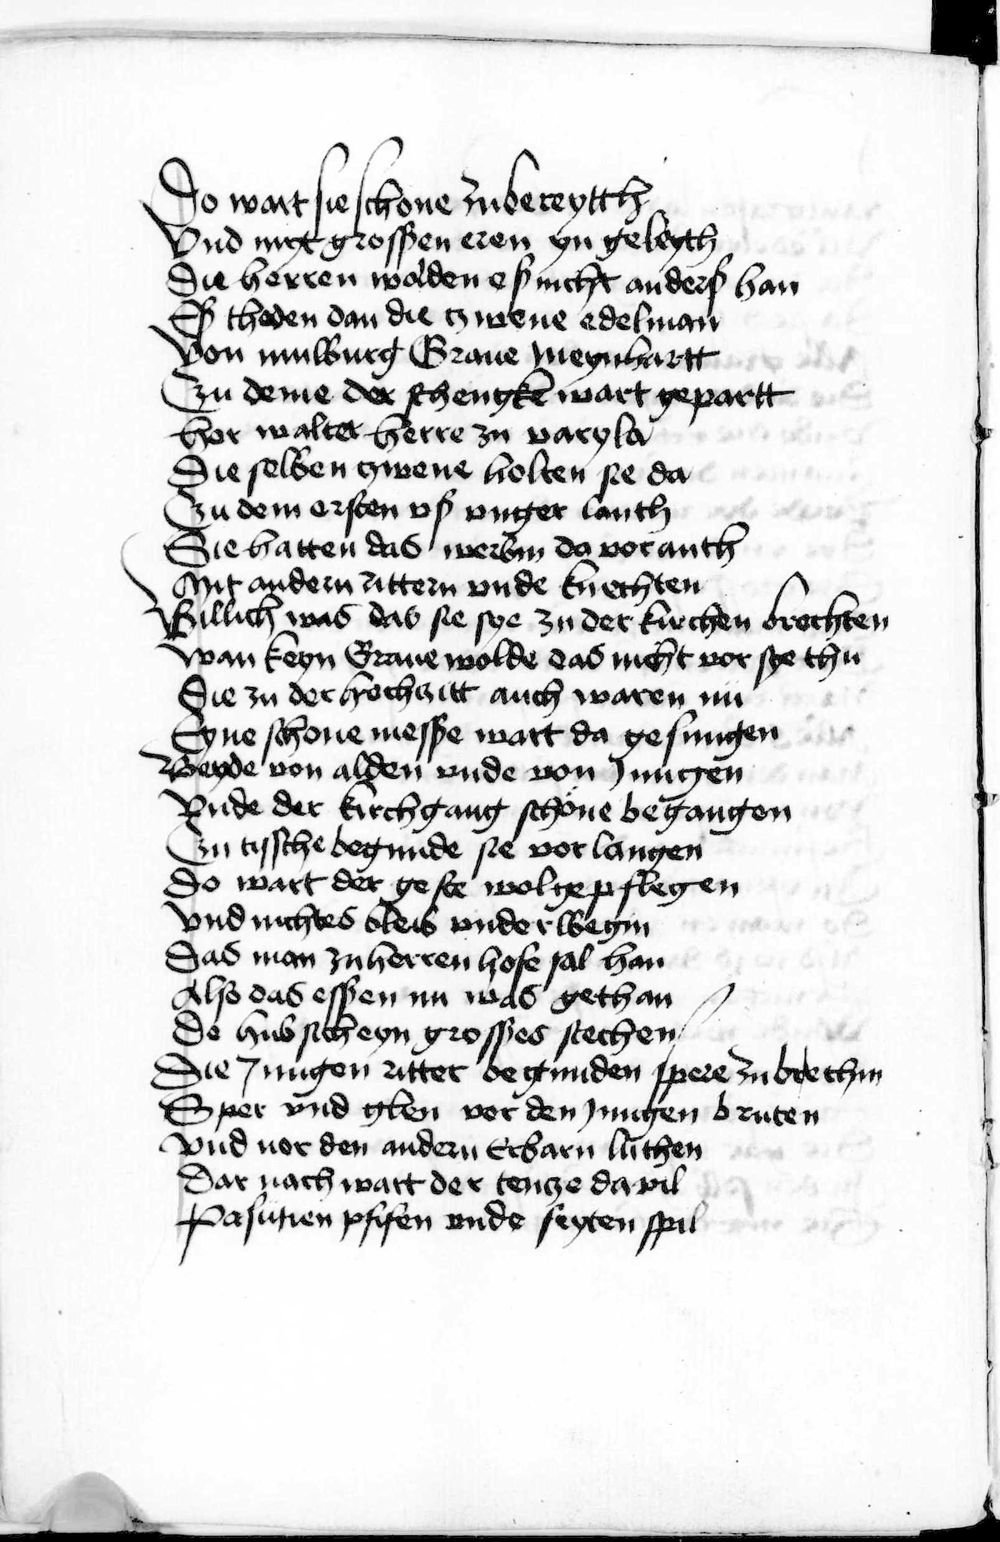 Do wart sie schone zubereytth
Vnd myt grossen eren yn geleyth
Die herren wolden eß nicht anderß han
Eß theden dan die zwene edelman
Von mulburg Graue meynhartt
Zu deme der schengke wart gepartt
her walter herre zu varyla
Die selben zwene holten sie da
Zu dem ersten vß vnger lanth
Sie hatten das werbin da vor anth
Mit andern rittern vnde knechten
Billich was das sie sye zu der kirchen brechten
Wan keyn Graue wolde das nicht vor sye thu
Die zu der hochzitt auch waren nu
Eyne schone messe wart da gesungen
Beyde von alden vnde von Jungen
Vnde der kirchgang schone begangen
Zu tyssche begunde sie vorlangen
Do wart der geste wol gepflegen
Vnd nichtes bleib vnderwegin
Das man zu herren hofe sal han
Also das essen nu was gethan
Do hub sich eyn grosses stechen
Die Jungen ritter begunden spere zu brechin
Sper vnd glen vor den Jungen bruten
Vnd vor den andern Erbarn luthen
Dar nach wart der tenze da vil
Pasunen pfifen vnde seyten spil